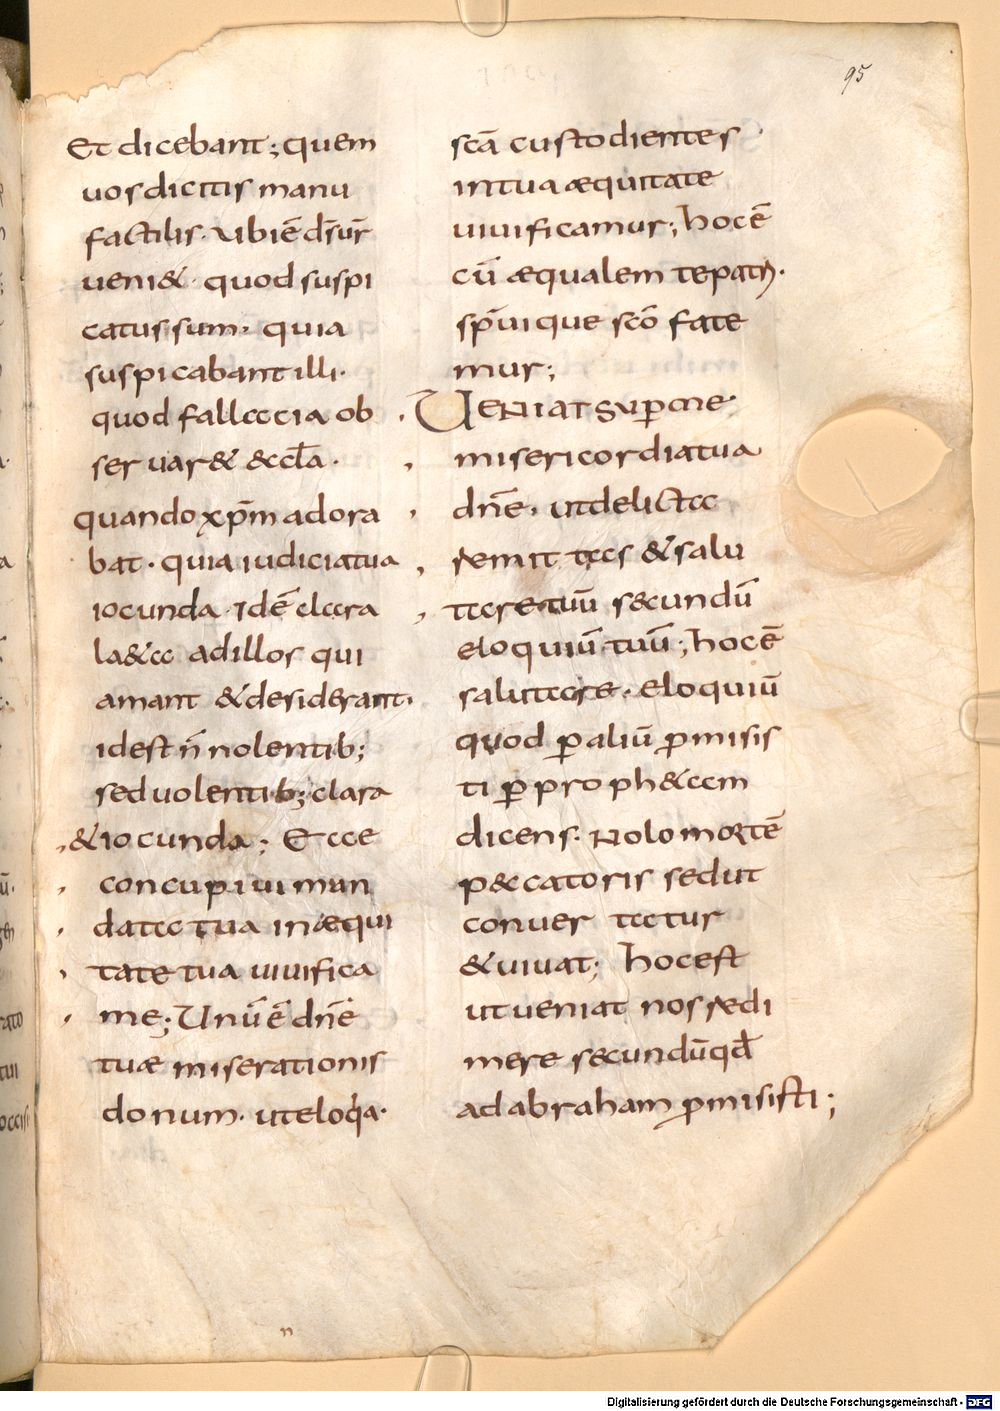 95
Et dicebant; quem
uos dicitis manu
factilis. Ubi ē ds̄ ur̄
ueni&. quod suspi
catus sum. quia
suspicabant illi.
quod fallacia ob
seruar& & cl̄a.
quando xp̄m adora
bat. quia iudicia tua
iocunda. Idē clara
la&a ad illos qui
amant & desiderant.
id est n̄ nolentib;
sed uolentib; clara
& iocunda; Ecce
concupiui man
data tua in æqui
tate tua uiuifica
me; Unū ē dn̄e
tuæ miserationis
donum. ut eloq̄a.
sc̄a custodientes
in tua æquitate
uiuificamur; hoc ē
cū æqualem te patri.
sp̄ui que sc̄o fate
mur;
Ueniat super me
misericordia tua
dn̄e. ut delicta
remittas & salu
tare tuū s&cundū
eloquiū tuū; hoc ē
salutare. eloquiū
quod ꝑ aliū ꝓmisis
ti ꝑ proph&am
dicens. Nolo mortē
p&catoris sed ut
conuertatur
& uiuat; hoc est
ut ueniat nos redi
mere s&cundū qd̄
ad abraham ꝓmisisti;
n
Digitalisierung gefördert durch die Deutsche Forschungsgemeinschaft - DFG